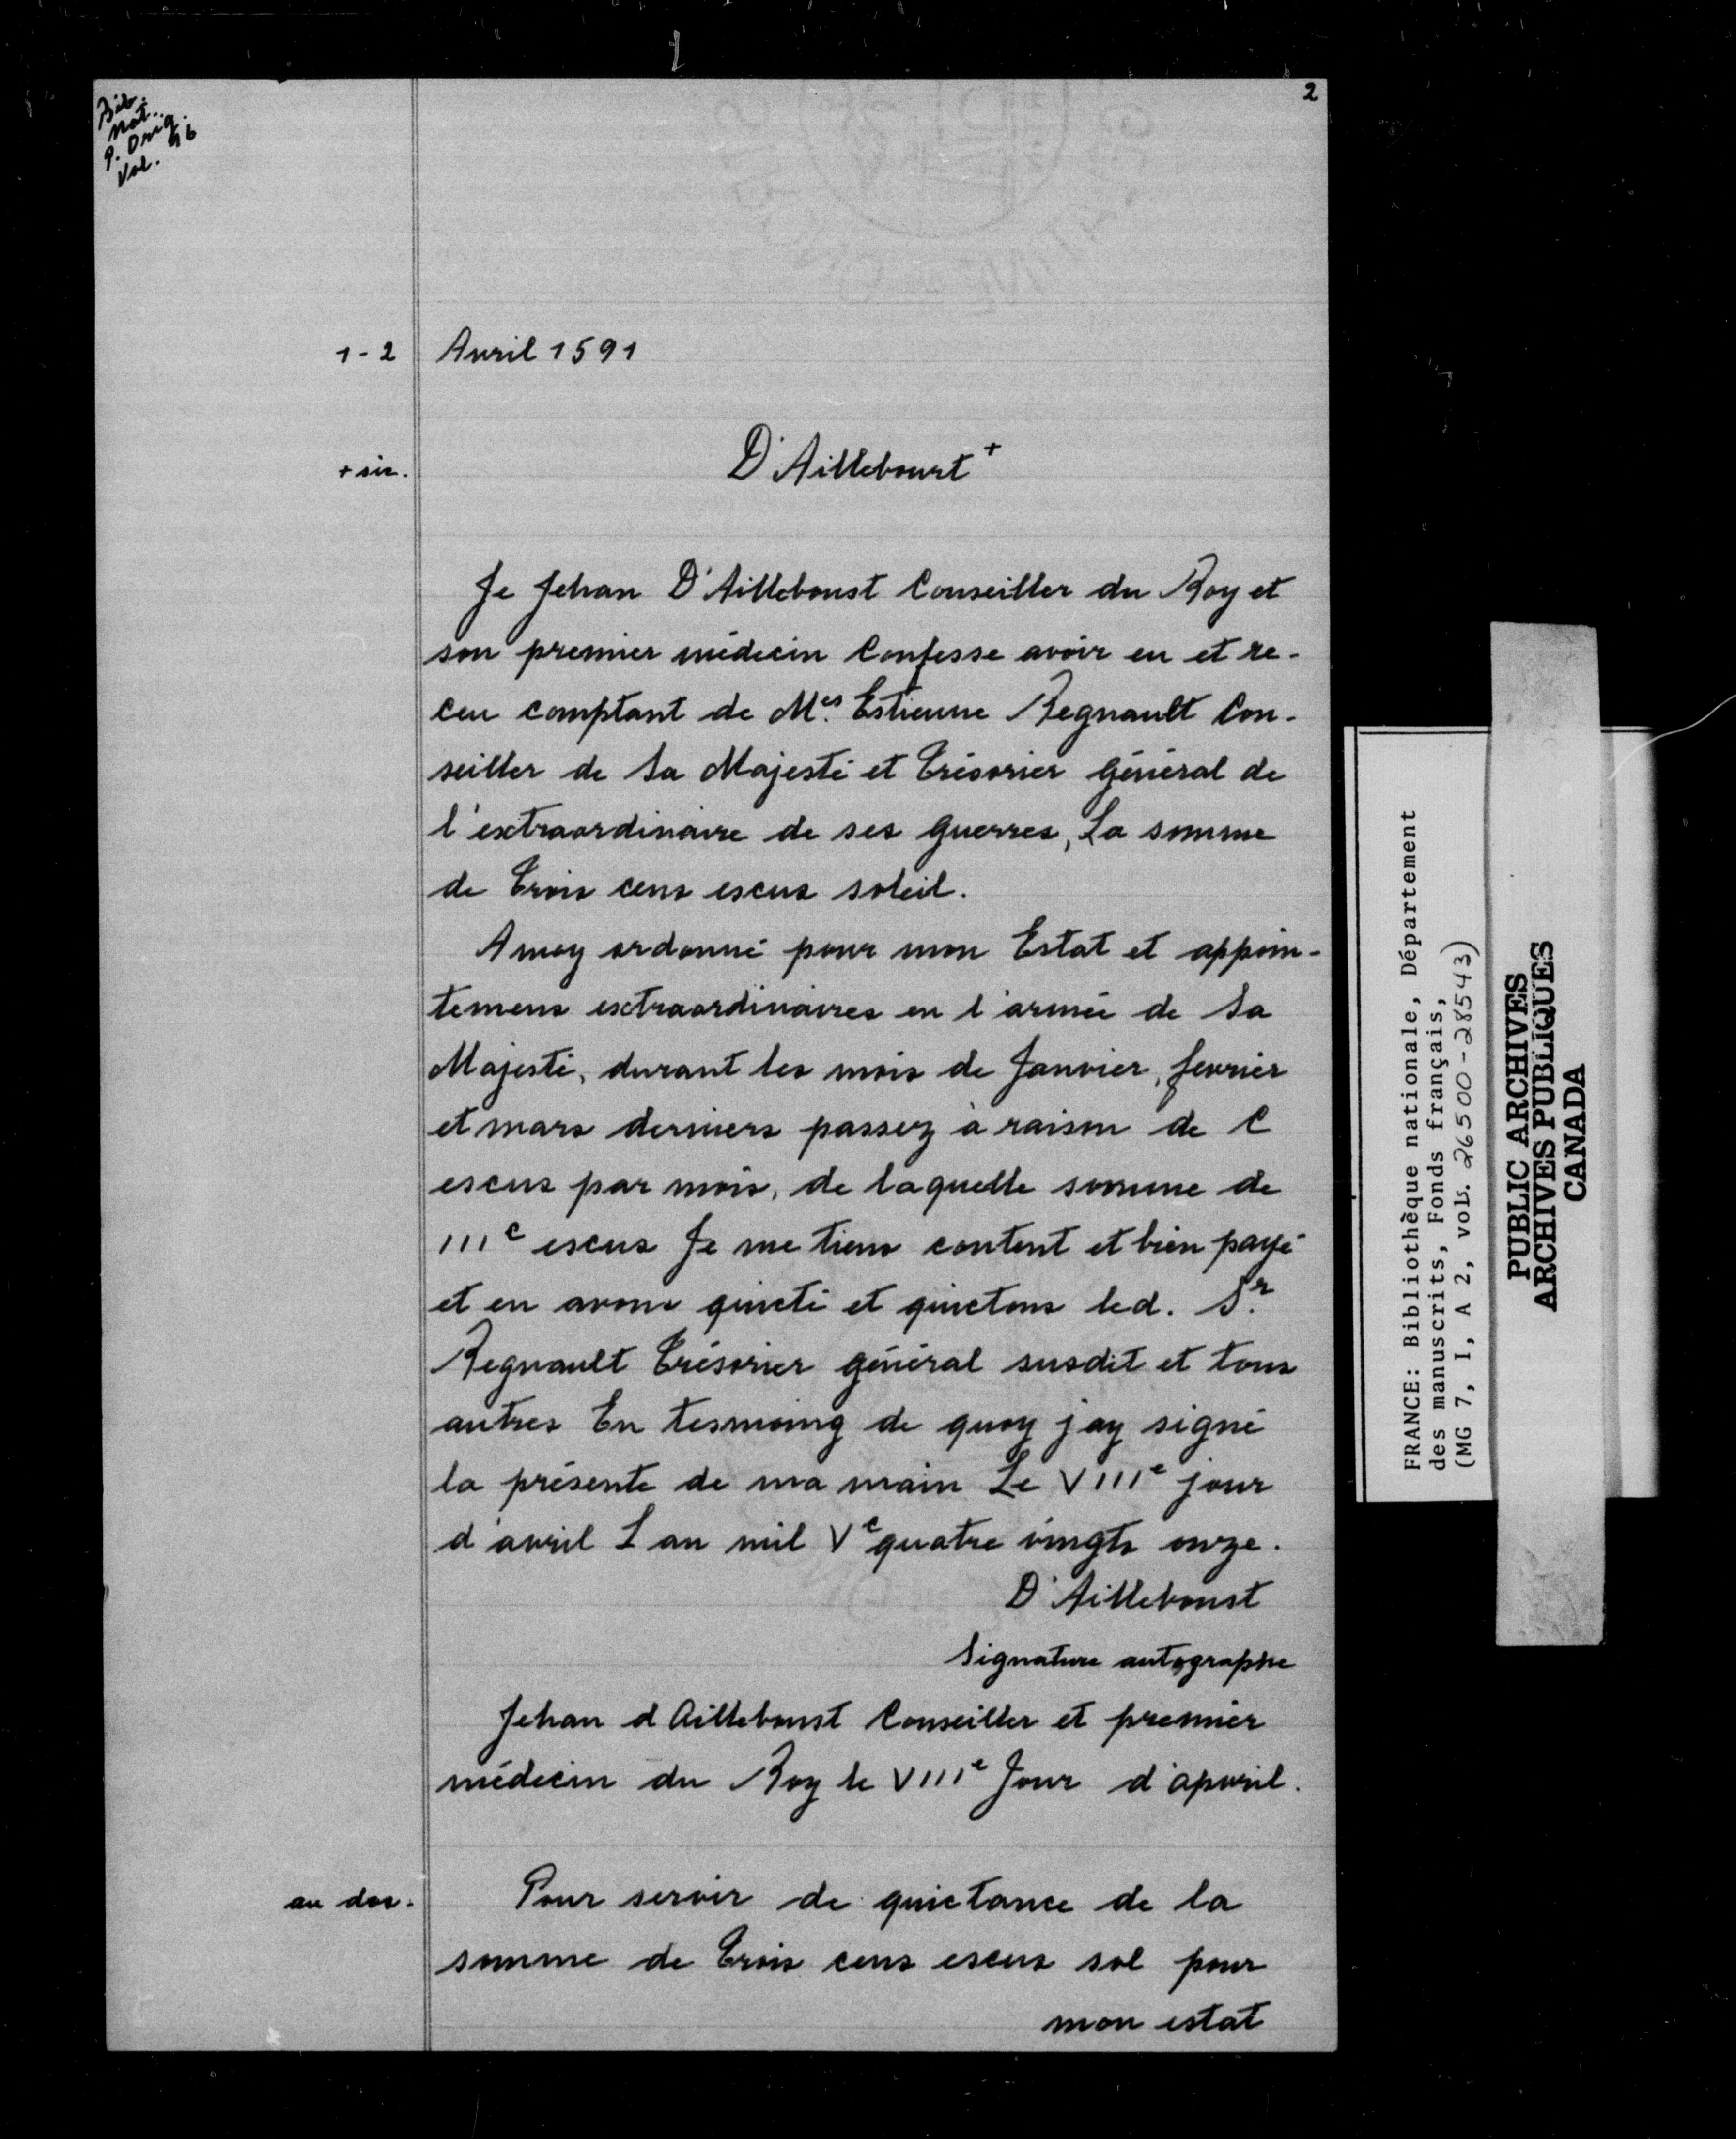 2
Bib.
Nat.
P. Orig.
Vol. 96
1-2 Avril 1591
+ sic. D'Aillebourt +
Je Jehan D'Ailleboust Conseiller du Roy et
son premier médecin Confesse avoir eu et re-
ceu comptant de Mes. Estienne Regnault Con-
seiller de Sa Majesté et Trésorier général de
l'extraordinaire de ses guerres, La somme
de Trois cens escus soleil.
Amoy ordonné pour mon Estat et appoin-
temens extraordinaires en l'armée de Sa
Majesté, durant les mois de Janvier, fevrier
et mars derniers passez à raison de C
escus par mois, de laquelle somme de
IIIc escus Je me tiens content et bien payé
et en avons quicté et quictons led. Sr.
Regnault Trésorier général susdit et tous
autres En tesmoing de quoy jay signé
la présente de ma main Le VIIIe jour
d'avril L an mil Vc quatre vingts onze.
D'Ailleboust
Signature autographe
Jehan d Ailleboust Conseiller et premier
médecin du Roy le VIIIe Jour d'apvril.
au dos. Pour servir de quictance de la
somme de Trois cens escus sol pour
mon estat
FRANCE: Bibliothèque nationale, Département
des manuscrits, Fonds français,
(MG 7, I, A 2, vols. 26500-28543)
PUBLIC ARCHIVES
ARCHIVES PUBLIQUES
CANADA